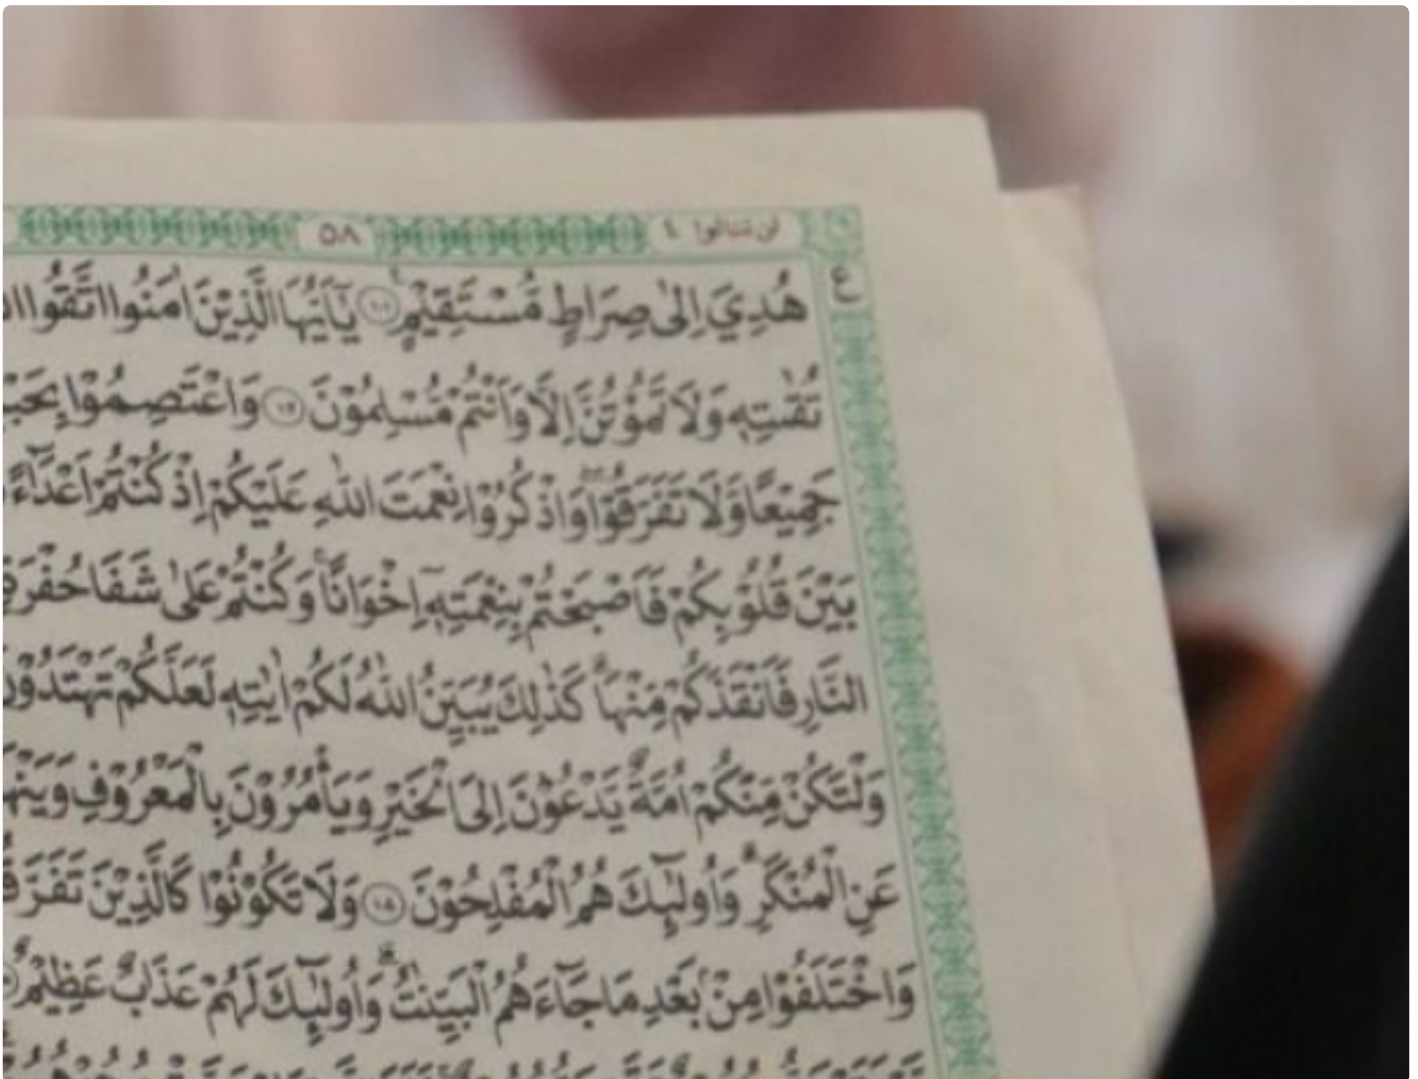 لن تنالوا ٤ ٥٨
ع
هُدِيَ اِلٰى صِرَاطٍ مُّسْتَقِيْمٍ ۝ يٰٓاَيُّهَا الَّذِيْنَ اٰمَنُوا اتَّقُوا
تُقٰىتِهٖ وَلَا تَمُوْتُنَّ اِلَّا وَاَنْتُمْ مُّسْلِمُوْنَ ۝ وَاعْتَصِمُوْا
جَمِيْعًا وَّلَا تَفَرَّقُوْا ۖ وَاذْكُرُوْا نِعْمَتَ اللّٰهِ عَلَيْكُمْ اِذْ كُنْتُمْ اَعْدَآءً
بَيْنَ قُلُوْبِكُمْ فَاَصْبَحْتُمْ بِنِعْمَتِهٖٓ اِخْوَانًا ۚ وَكُنْتُمْ عَلٰى شَفَا
النَّارِ فَاَنْقَذَكُمْ مِّنْهَا ۗ كَذٰلِكَ يُبَيِّنُ اللّٰهُ لَكُمْ اٰيٰتِهٖ لَعَلَّكُمْ تَهْتَدُوْنَ
وَلْتَكُنْ مِّنْكُمْ اُمَّةٌ يَّدْعُوْنَ اِلَى الْخَيْرِ وَيَأْمُرُوْنَ بِالْمَعْرُوْفِ
عَنِ الْمُنْكَرِ ۗ وَاُولٰۤىِٕكَ هُمُ الْمُفْلِحُوْنَ ۝ وَلَا تَكُوْنُوْا كَالَّذِيْنَ
وَاخْتَلَفُوْا مِنْۢ بَعْدِ مَا جَآءَهُمُ الْبَيِّنٰتُ ۗ وَاُولٰۤىِٕكَ لَهُمْ عَذَابٌ عَظِيْمٌ